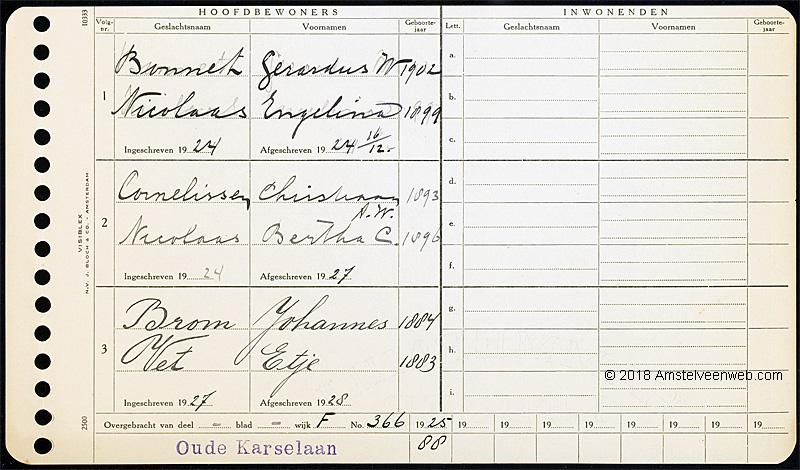 HOOFDBEWONERS INWONENDEN
Volg-nr. Geslachtsnaam Voornamen Geboorte-jaar Lett. Geslachtsnaam Voornamen Geboorte-jaar
10333
1
Bonnet Gerardus W 1902
a.
Nicolaas Engelina 1899
b.
c.
Ingeschreven 1924 Afgeschreven 1924 16/12.
2
Cornelissen Christiaan 1893
A. W.
d.
Nicolaas Bertha C. 1896
e.
f.
Ingeschreven 1924 Afgeschreven 1927
VISIBLEX
N.V. J. BLOCH & CO. - AMSTERDAM
3
Brom Johannes 1884
g.
Vet Etje 1883
h.
i.
© 2018 Amstelveenweb.com
Ingeschreven 1927 Afgeschreven 1928
2500
Overgebracht van deel - blad - wijk F No. 366 1925 19 19 19 19 19 19 19 19
Oude Karselaan 88